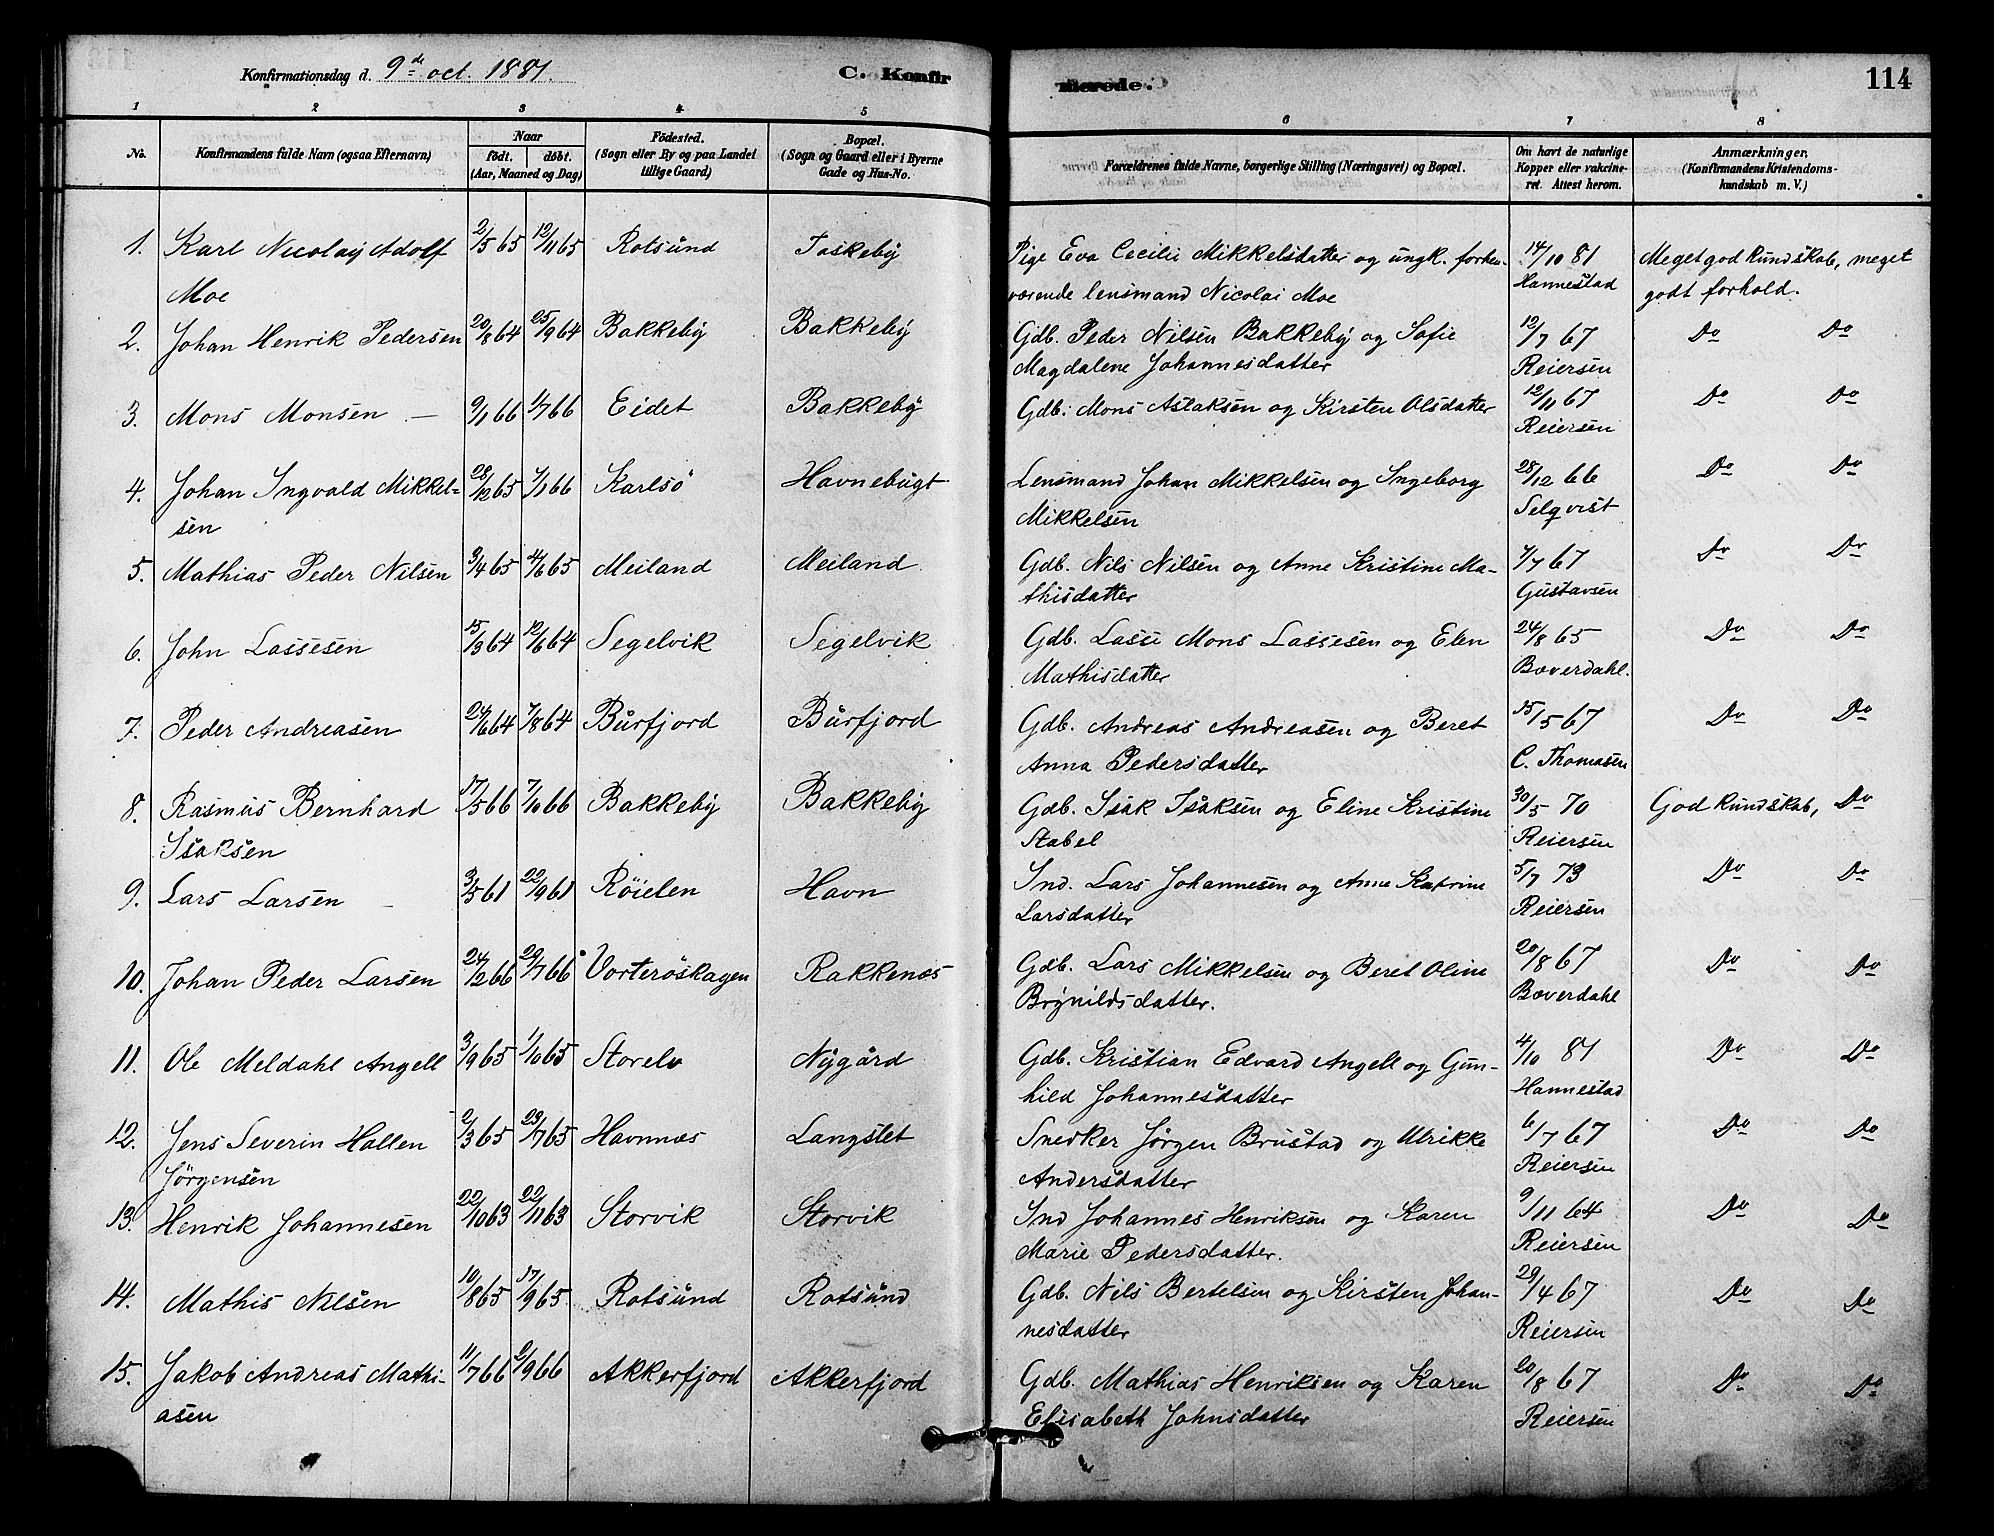 Konfirmationsdag d. 9de oct. 1881. C. Konfirmerede. 114
1 2 3 4 5 6 7 8
No. Konfirmandens fulde Navn (ogsaa Efternavn) Naar födt. döbt. (Aar, Maaned og Dag) Födested. (Sogn eller By og paa Landet tillige Gaard) Bopæl. (Sogn og Gaard eller i Byerne Gade og Hus-No.) Forældrenes fulde Navne, borgerlige Stilling (Næringsvei) og Bopæl. Om havt de naturlige Kopper eller vakcineret. Attest herom. Anmærkninger. (Konfirmandens Kristendomskundskab m. V.)
1. Karl Nicolay Adolf 2/5 65 12/11 65 Rotsund Taskeby Pige Eva Cecilie Mikkelsdatter og ungk. forhen- 14/10 81 Meget god kundskab, meget
Moe værende lensmand Nicolai Moe Hannestad godt forhold.
2. Johan Henrik Pedersen 20/8 64 25/9 64 Bakkeby Bakkeby Gdb. Peder Nilsen Bakkeby og Sofie 12/7 67 Do Do
Magdalene Johannesdatter Reiersen
3. Mons Monsen – 9/1 66 1/7 66 Eidet Bakkeby Gdb. Mons Aslaksen og Kirsten Olsdatter 12/11 67 Do Do
Reiersen
4. Johan Ingvald Mikkel- 28/10 65 1/1 66 Karlsö Havnebugt Lensmand Johan Mikkelsen og Ingeborg 28/12 66 Do Do
sen Mikkelsen Selqvist
5. Mathias Peder Nilsen 3/4 65 4/6 65 Meiland Meiland Gdb. Nils Nilsen og Anne Kristine Ma- 1/7 67 Do Do
thisdatter Gustavsen
6. John Lassesen 15/3 64 12/6 64 Segelvik Segelvik Gdb. Lasse Mons Lassesen og Elen 24/8 65 Do Do
Mathisdatter Bæverdahl.
7. Peder Andreasen 24/6 64 7/8 64 Burfjord Burfjord Gdb. Andreas Andreasen og Beret 15/5 67 Do Do
Anna Pedersdatter C. Thomasen
8. Rasmus Bernhard 17/5 66 7/10 66 Bakkeby Bakkeby Gdb. Isak Isaksen og Eline Kristine 30/5 70 God kundskab, Do
Isaksen Stabel Reiersen
9. Lars Larsen – 3/5 61 22/9 61 Röielen Havn Ind. Lars Johannesen og Anne Katrine 5/7 73 Do Do
Larsdatter Reiersen
10. Johan Peder Larsen 24/2 66 29/7 66 Vorteröskagen Rakkenæs Gdb. Lars Mikkelsen og Beret Oline 20/8 67 Do Do
Brynildsdatter. Bæverdahl
11. Ole Meldahl Angell 3/9 65 1/10 65 Storelv Nygård Gdb. Kristian Edvard Angell og Gun- 4/10 81 Do Do
hild Johannesdatter Hannestad
12. Jens Severin Hallen 2/3 65 23/7 65 Havnnæs Langslet Snedker Jörgen Brustad og Ulrikke 6/7 67 Do Do
Jörgensen Andersdatter Reiersen
13. Henrik Johannesen 22/10 63 22/11 63 Storvik Storvik Ind Johannes Henriksen og Karen 9/11 64 Do Do
Marie Pedersdatter. Reiersen
14. Mathis Nilsen 10/8 65 17/9 65 Rotsund Rotsund Gdb. Nils Bertelsen og Kirsten Johan- 29/4 67 Do Do
nesdatter Reiersen
15. Jakob Andreas Mathi- 11/7 66 2/9 66 Akkerfjord Akkerfjord Gdb. Mathias Henriksen og Karen 20/8 67 Do Do
asen Elisabeth Johnsdatter Reiersen